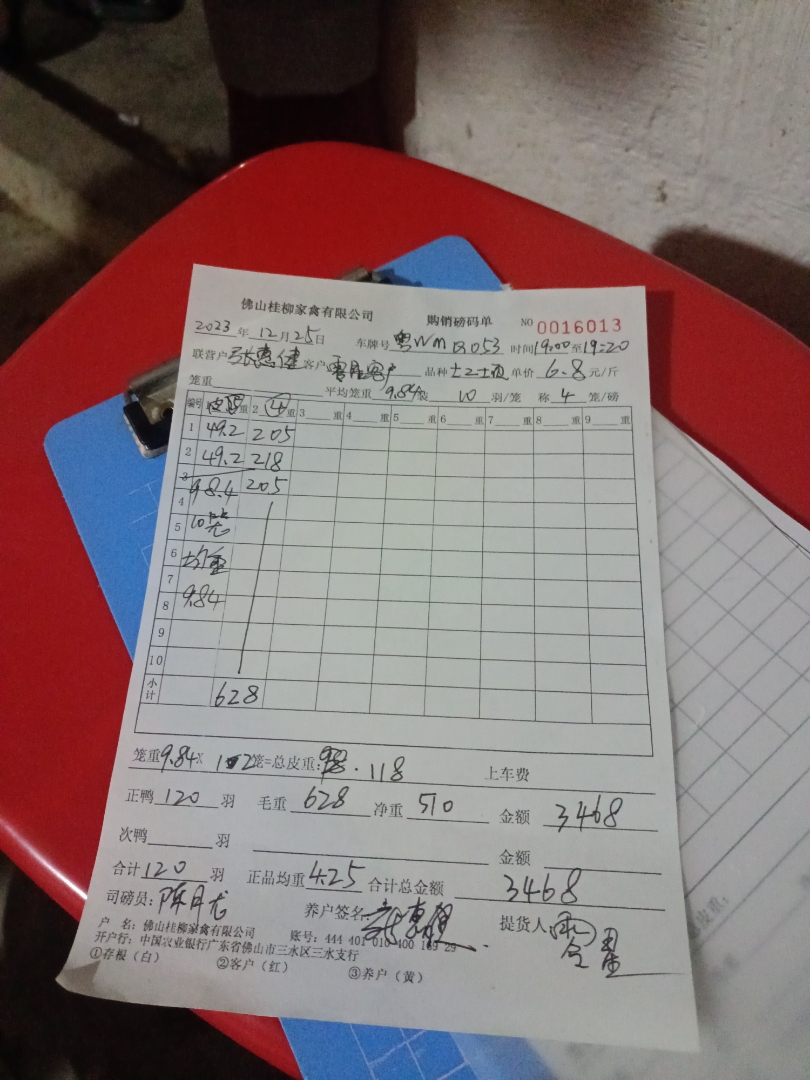 佛山桂柳家禽有限公司 购销磅码单 NO 0016013
2023年12月25日 车牌号 粤WM 053 时间19:00至19:20
联营户 张惠健 客户 零星客户 品种 单价 6.8 元/斤
笼重 平均笼重 9.84 10 羽/笼 称 4 笼/磅
编号 皮重 重 2 ④ 重 3 重 4 重 5 重 6 重 7 重 8 重 9 重
1 49.2 205
2 49.2 218
3 98.4 205
4
5 10笼
6 均重
7
8 9.84
9
10
小计 628
笼重9.84× 12笼=总皮重: 118 上车费
正鸭 120 羽 毛重 628 净重 510 金额 3468
次鸭 羽 金额
合计 120 羽 正品均重 4.25 合计总金额 3468
司磅员: 养户签名: 提货人
户 名: 佛山桂柳家禽有限公司 账号: 444 401 010 400 29
开户行: 中国农业银行广东省佛山市三水区三水支行
①存根（白） ②客户（红） ③养户（黄）
皮重: